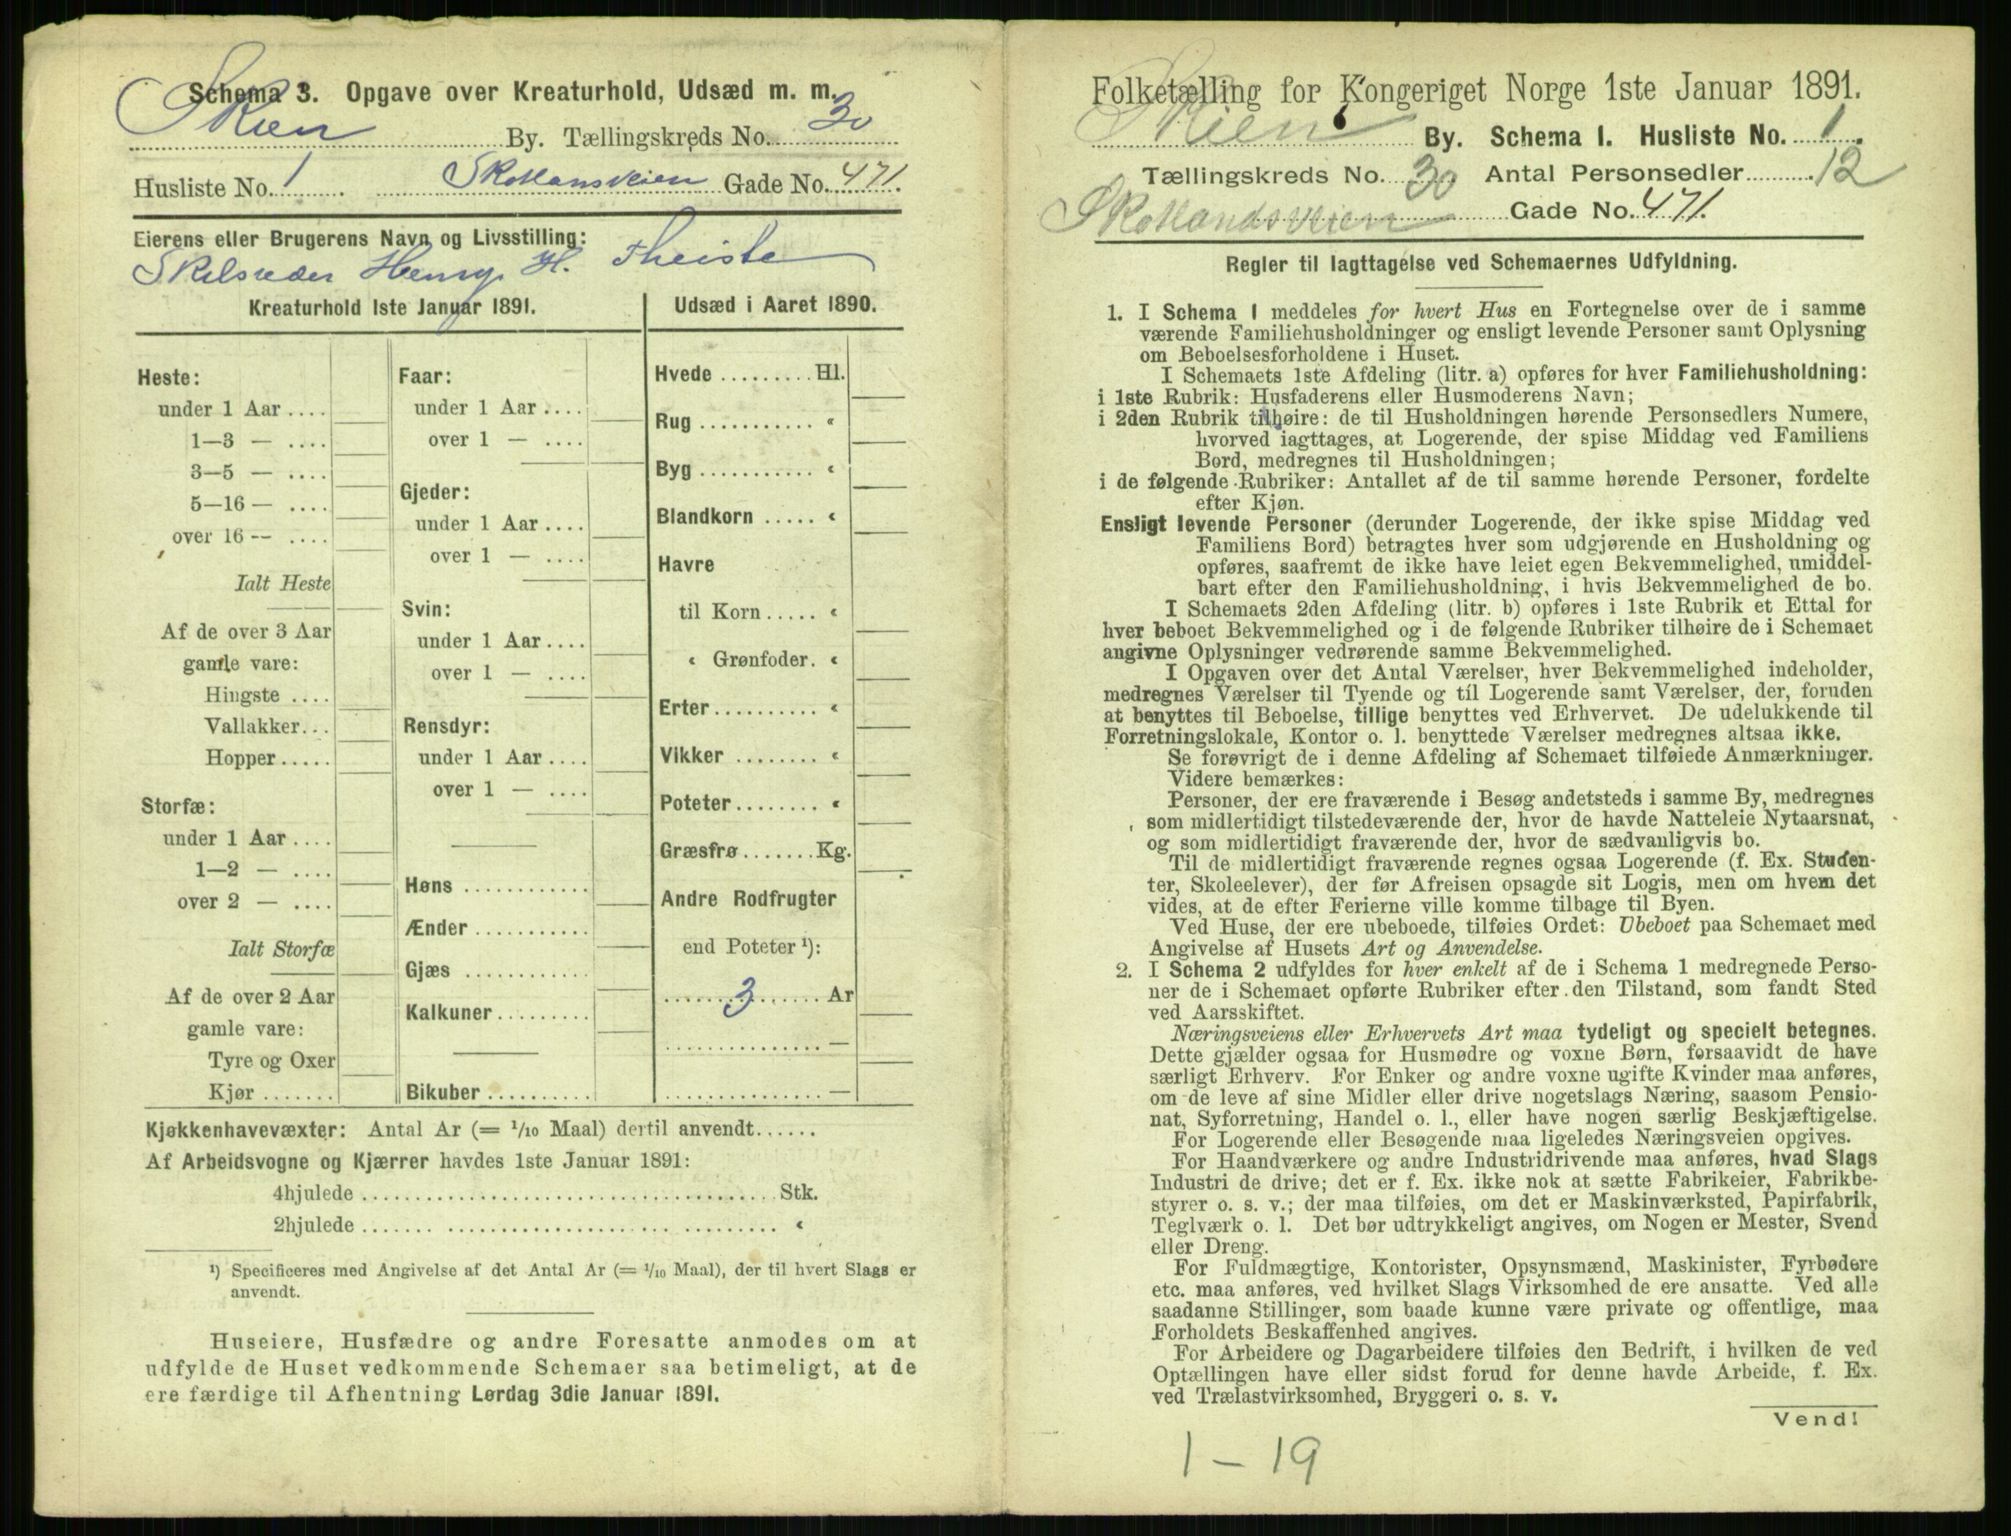 Schema 3. Opgave over Kreaturhold, Udsæd m. m.
Skien By. Tællingskreds No. 30
Husliste No. 1 Skotlansveien Gade No. 471.
Eierens eller Brugerens Navn og Livsstilling:
Skibsreder Henry H. Theiste
Kreaturhold 1ste Januar 1891.
Heste:
under 1 Aar ....
1—3 — ....
3—5 — ....
5—16 — ....
over 16 -- ....
Ialt Heste
Af de over 3 Aar
gamle vare:
Hingste ....
Vallakker...
Hopper.....
Storfæ:
under 1 Aar ....
1—2 — ....
over 2 — ....
Ialt Storfæ
Af de over 2 Aar
gamle vare:
Tyre og Oxer
Kjør .......
Faar:
under 1 Aar ....
over 1 — ....
Gjeder:
under 1 Aar ....
over 1 — ....
Svin:
under 1 Aar ....
over 1 — ....
Rensdyr:
under 1 Aar ....
over 1 — ....
Høns ............
Ænder ...........
Gjæs ............
Kalkuner.........
Bikuber ..........
Udsæd i Aaret 1890.
Hvede ......... Hl.
Rug ........... «
Byg ........... «
Blandkorn ..... «
Havre
til Korn ..... «
« Grønfoder. «
Erter.......... «
Vikker ........ «
Poteter........ «
Græsfrø.......Kg.
Andre Rodfrugter
end Poteter ¹):
3 Ar
............... —
............... —
Kjøkkenhavevæxter: Antal Ar (= 1/10 Maal) dertil anvendt......
Af Arbeidsvogne og Kjærrer havdes 1ste Januar 1891:
4hjulede ........................................ Stk.
2hjulede ........................................ «
¹) Specificeres med Angivelse af det Antal Ar (= 1/10 Maal), der til hvert Slags er
anvendt.
Huseiere, Husfædre og andre Foresatte anmodes om at
udfylde de Huset vedkommende Schemaer saa betimeligt, at de
ere færdige til Afhentning Lørdag 3die Januar 1891.
Folketælling for Kongeriget Norge 1ste Januar 1891.
Skien By. Schema I. Husliste No. 1.
Tællingskreds No. 30 Antal Personsedler 12
Skotlandsveien Gade No. 471.
Regler til Iagttagelse ved Schemaernes Udfyldning.
1. I Schema 1 meddeles for hvert Hus en Fortegnelse over de i samme
værende Familiehusholdninger og ensligt levende Personer samt Oplysning
om Beboelsesforholdene i Huset.
I Schemaets 1ste Afdeling (litr. a) opføres for hver Familiehusholdning:
i 1ste Rubrik: Husfaderens eller Husmoderens Navn;
i 2den Rubrik tilhøire: de til Husholdningen hørende Personsedlers Numere,
hvorved iagttages, at Logerende, der spise Middag ved Familiens
Bord, medregnes til Husholdningen;
i de følgende Rubriker: Antallet af de til samme hørende Personer, fordelte
efter Kjøn.
Ensligt levende Personer (derunder Logerende, der ikke spise Middag ved
Familiens Bord) betragtes hver som udgjørende en Husholdning og
opføres, saafremt de ikke have leiet egen Bekvemmelighed, umiddel-
bart efter den Familiehusholdning, i hvis Bekvemmelighed de bo.
I Schemaets 2den Afdeling (litr. b) opføres i 1ste Rubrik et Ettal for
hver beboet Bekvemmelighed og i de følgende Rubriker tilhøire de i Schemaet
angivne Oplysninger vedrørende samme Bekvemmelighed.
I Opgaven over det Antal Værelser, hver Bekvemmelighed indeholder,
medregnes Værelser til Tyende og til Logerende samt Værelser, der, foruden
at benyttes til Beboelse, tillige benyttes ved Erhvervet. De udelukkende til
Forretningslokale, Kontor o. l. benyttede Værelser medregnes altsaa ikke.
Se forøvrigt de i denne Afdeling af Schemaet tilføiede Anmærkninger.
Videre bemærkes:
Personer, der ere fraværende i Besøg andetsteds i samme By, medregnes
som midlertidigt tilstedeværende der, hvor de havde Natteleie Nytaarsnat,
og som midlertidigt fraværende der, hvor de sædvanligvis bo.
Til de midlertidigt fraværende regnes ogsaa Logerende (f. Ex. Studen-
ter, Skoleelever), der før Afreisen opsagde sit Logis, men om hvem det
vides, at de efter Ferierne ville komme tilbage til Byen.
Ved Huse, der ere ubeboede, tilføies Ordet: Ubeboet paa Schemaet med
Angivelse af Husets Art og Anvendelse.
2. I Schema 2 udfyldes for hver enkelt af de i Schema 1 medregnede Perso-
ner de i Schemaet opførte Rubriker efter den Tilstand, som fandt Sted
ved Aarsskiftet.
Næringsveiens eller Erhvervets Art maa tydeligt og specielt betegnes.
Dette gjælder ogsaa for Husmødre og voxne Børn, forsaavidt de have
særligt Erhverv. For Enker og andre voxne ugifte Kvinder maa anføres,
om de leve af sine Midler eller drive nogetslags Næring, saasom Pensio-
nat, Syforretning, Handel o. l., eller have nogen særlig Beskjæftigelse.
For Logerende eller Besøgende maa ligeledes Næringsveien opgives.
For Haandværkere og andre Industridrivende maa anføres, hvad Slags
Industri de drive; det er f. Ex. ikke nok at sætte Fabrikeier, Fabrikbe-
styrer o. s. v.; der maa tilføies, om det er Maskinværksted, Papirfabrik,
Teglværk o. l. Det bør udtrykkeligt angives, om Nogen er Mester, Svend
eller Dreng.
For Fuldmægtige, Kontorister, Opsynsmænd, Maskinister, Fyrbødere
etc. maa anføres, ved hvilket Slags Virksomhed de ere ansatte. Ved alle
saadanne Stillinger, som baade kunne være private og offentlige, maa
Forholdets Beskaffenhed angives.
For Arbeidere og Dagarbeidere tilføies den Bedrift, i hvilken de ved
Optællingen have eller sidst forud for denne havde Arbeide, f. Ex.
ved Trælastvirksomhed, Bryggeri o. s. v.
Vend!
1 – 19